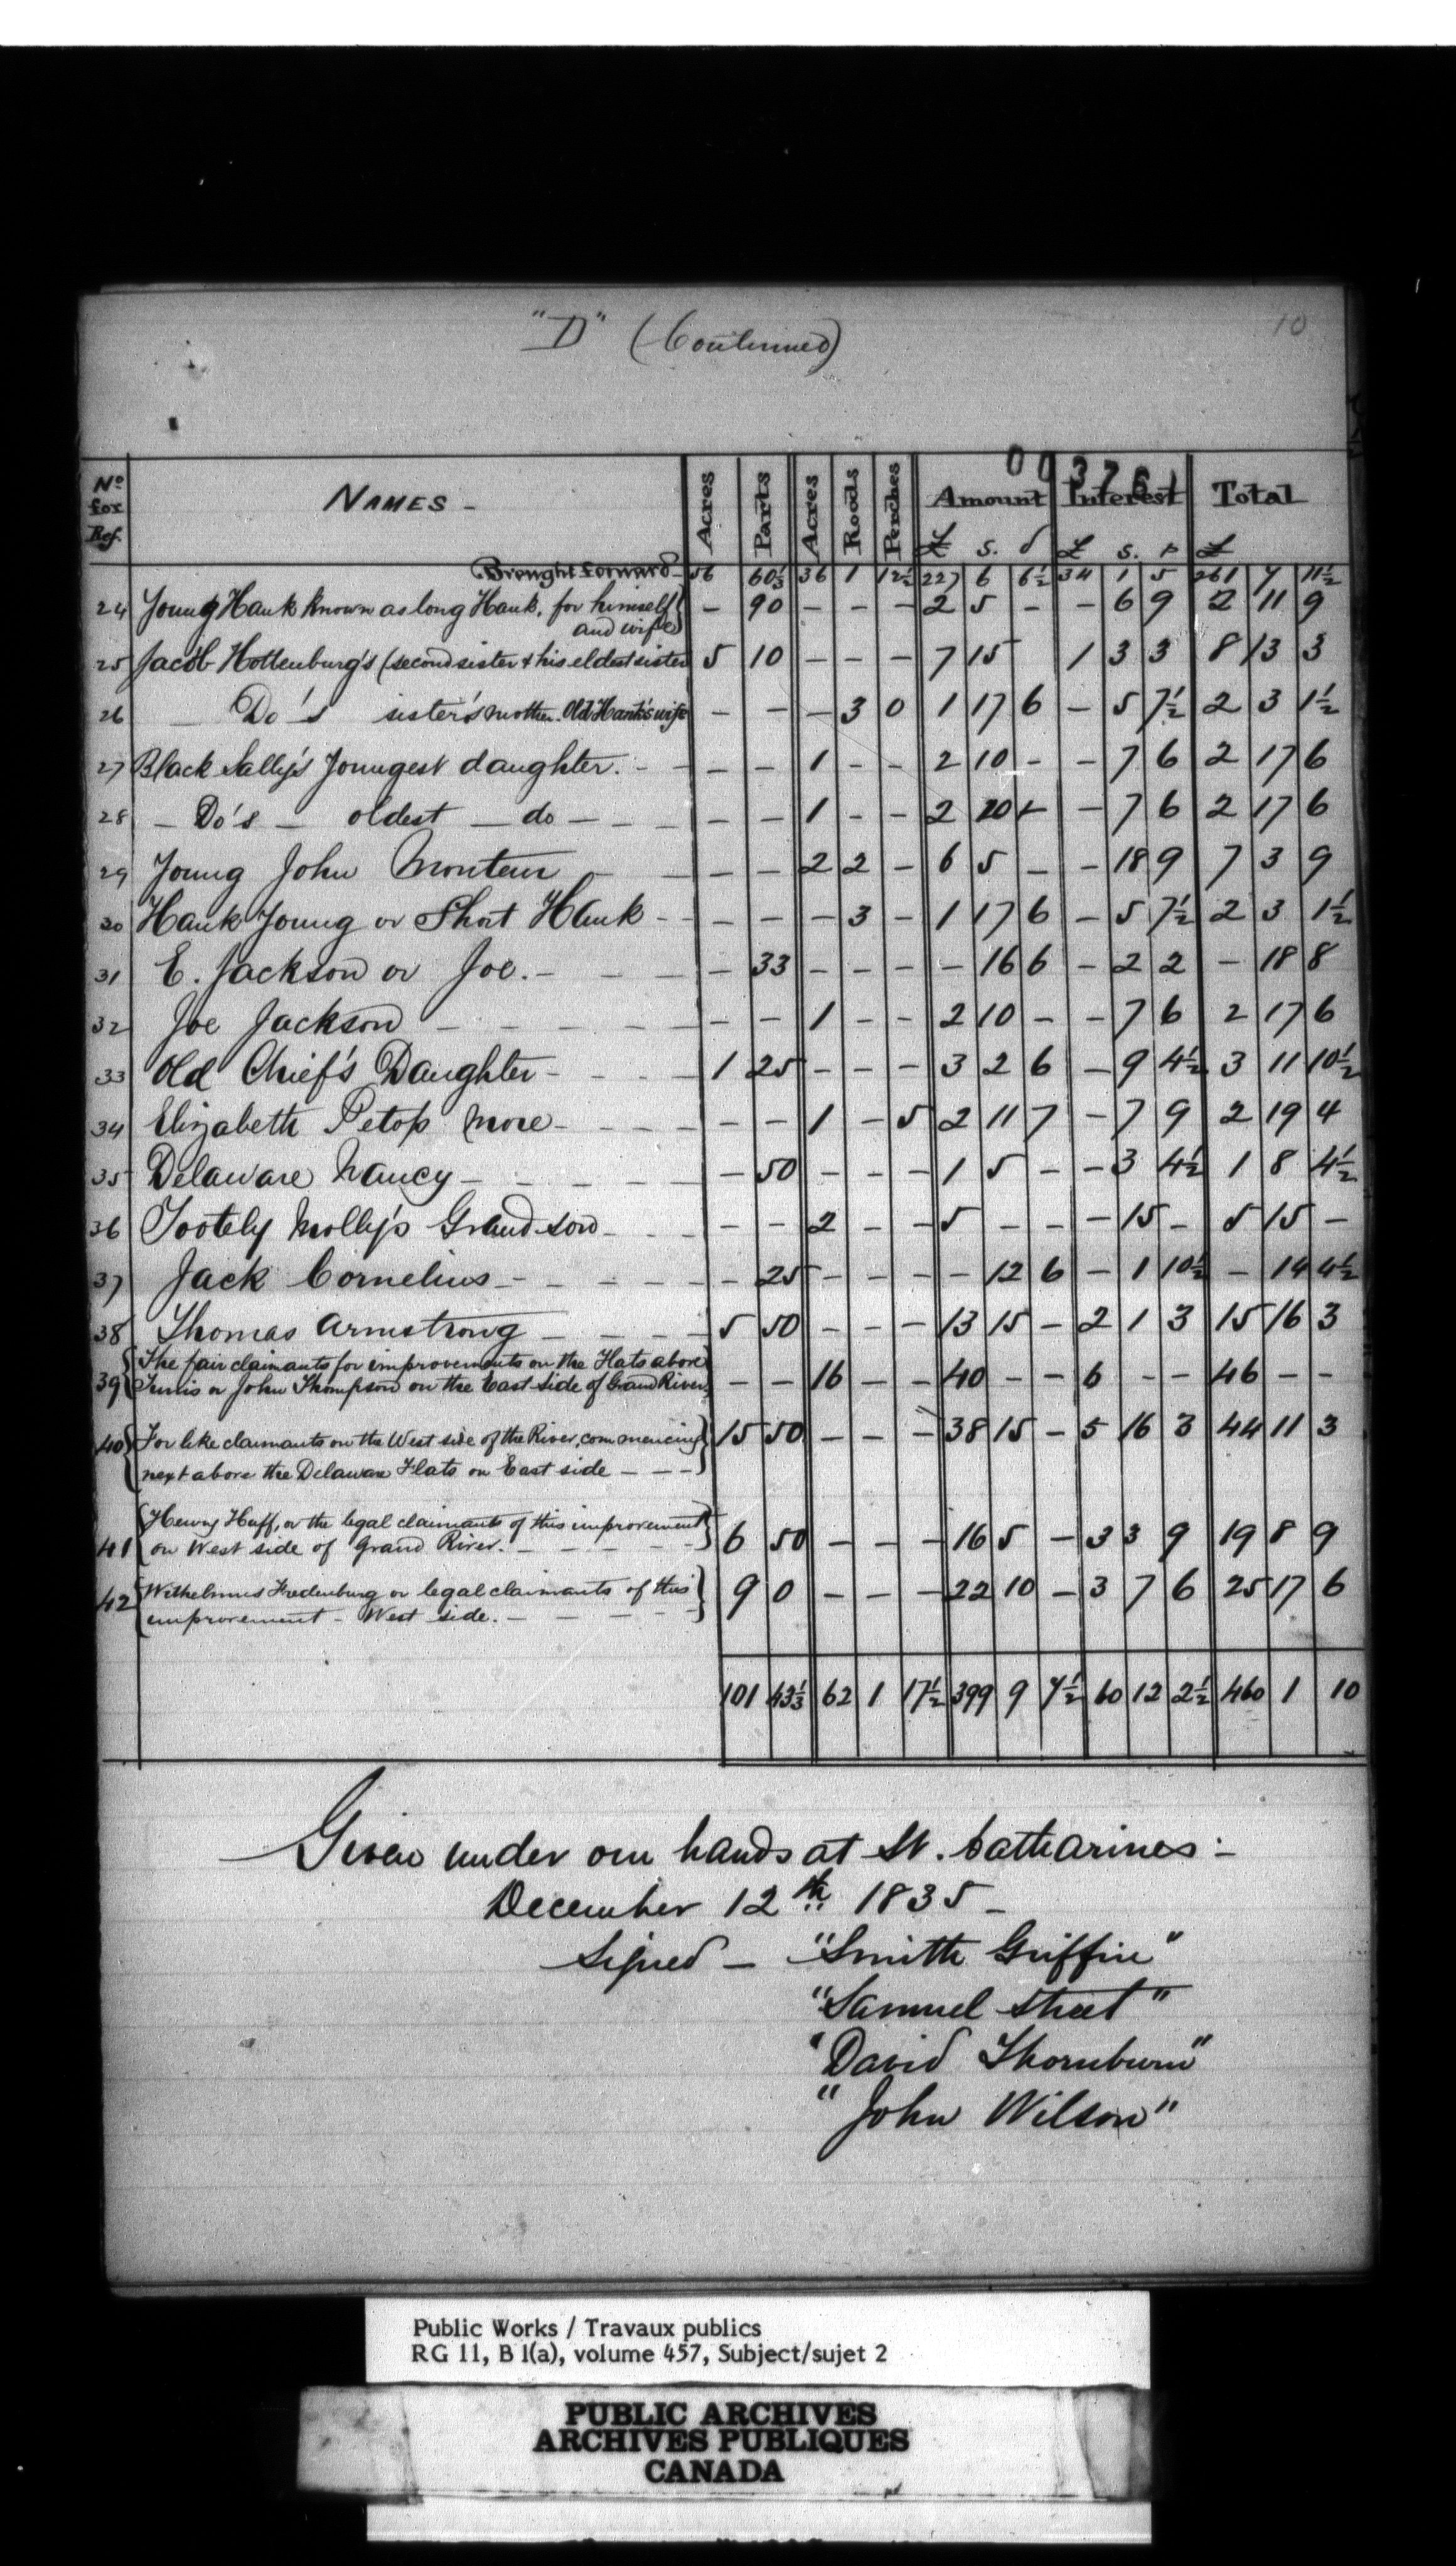 "D" (Continued)
10
00376
No for Ref. NAMES - Acres Parts Acres Roods Perches Amount Interest Total
£ s. d £ s. P £
Brought forward - 56 60⅓ 36 1 12½ 227 6 6½ 34 1 5 261 7 11½
24 Young Hank known as long Hank, for himself - 90 - - - 2 5 - - 6 9 2 11 9
and wife
25 Jacob Hottenburg's (second sister & his eldest sister 5 10 - - - 7 15 1 3 3 8 13 3
26 Do's sister's mother. Old Hank's wife - - - 3 0 1 17 6 - 5 7½ 2 3 1½
27 Black Sally's Youngest daughter. - - - 1 - - 2 10 - - 7 6 2 17 6
28 - Do's - oldest - do - - - - - 1 - - 2 10 - - 7 6 2 17 6
29 Young John Monteur - - 2 2 - 6 5 - - 18 9 7 3 9
30 Hank Young or Short Hank - - - - 3 - 1 17 6 - 5 7½ 2 3 1½
31 E. Jackson or Joe. - - 33 - - - - 16 6 - 2 2 - 18 8
32 Joe Jackson - - - 1 - - 2 10 - - 7 6 2 17 6
33 Old Chief's Daughter - 1 25 - - - 3 2 6 - 9 4½ 3 11 10½
34 Elizabeth Petop more - - - 1 - 5 2 11 7 - 7 9 2 19 4
35 Delaware Nancy - - 50 - - - 1 5 - - 3 4½ 1 8 4½
36 Tootely Molly's Grand-son - - - 2 - - 5 - - - 15 - 5 15 -
37 Jack Cornelius - - 25 - - - - 12 6 - 1 10½ - 14 4½
38 Thomas Armstrong - 5 50 - - - 13 15 - 2 1 3 15 16 3
The fair claimants for improvements on the Flats above
39 or John Thompson on the East side of Grand River - - 16 - - 40 - - 6 - - 46 - -
40 For like claimants on the West side of the River, commencing 15 50 - - - 38 15 - 5 16 3 44 11 3
next above the Delaware Flats on East side - - -
Henry Huff, or the legal claimants of this improvement
41 on West side of Grand River. - 6 50 - - - 16 5 - 3 3 9 19 8 9
42 Wilhelmus Fredenburg or legal claimants of this 9 0 - - - 22 10 - 3 7 6 25 17 6
improvement - West side. -
101 43⅓ 62 1 17½ 399 9 7½ 60 12 2½ 460 1 10
Given under our hands at St. Catharines: -
December 12th 1835 -
Signed - "Smith Griffin"
"Samuel Street"
"David Thornburn"
"John Wilson"
Public Works / Travaux publics
RG 11, B 1(a), volume 457, Subject/sujet 2
PUBLIC ARCHIVES
ARCHIVES PUBLIQUES
CANADA